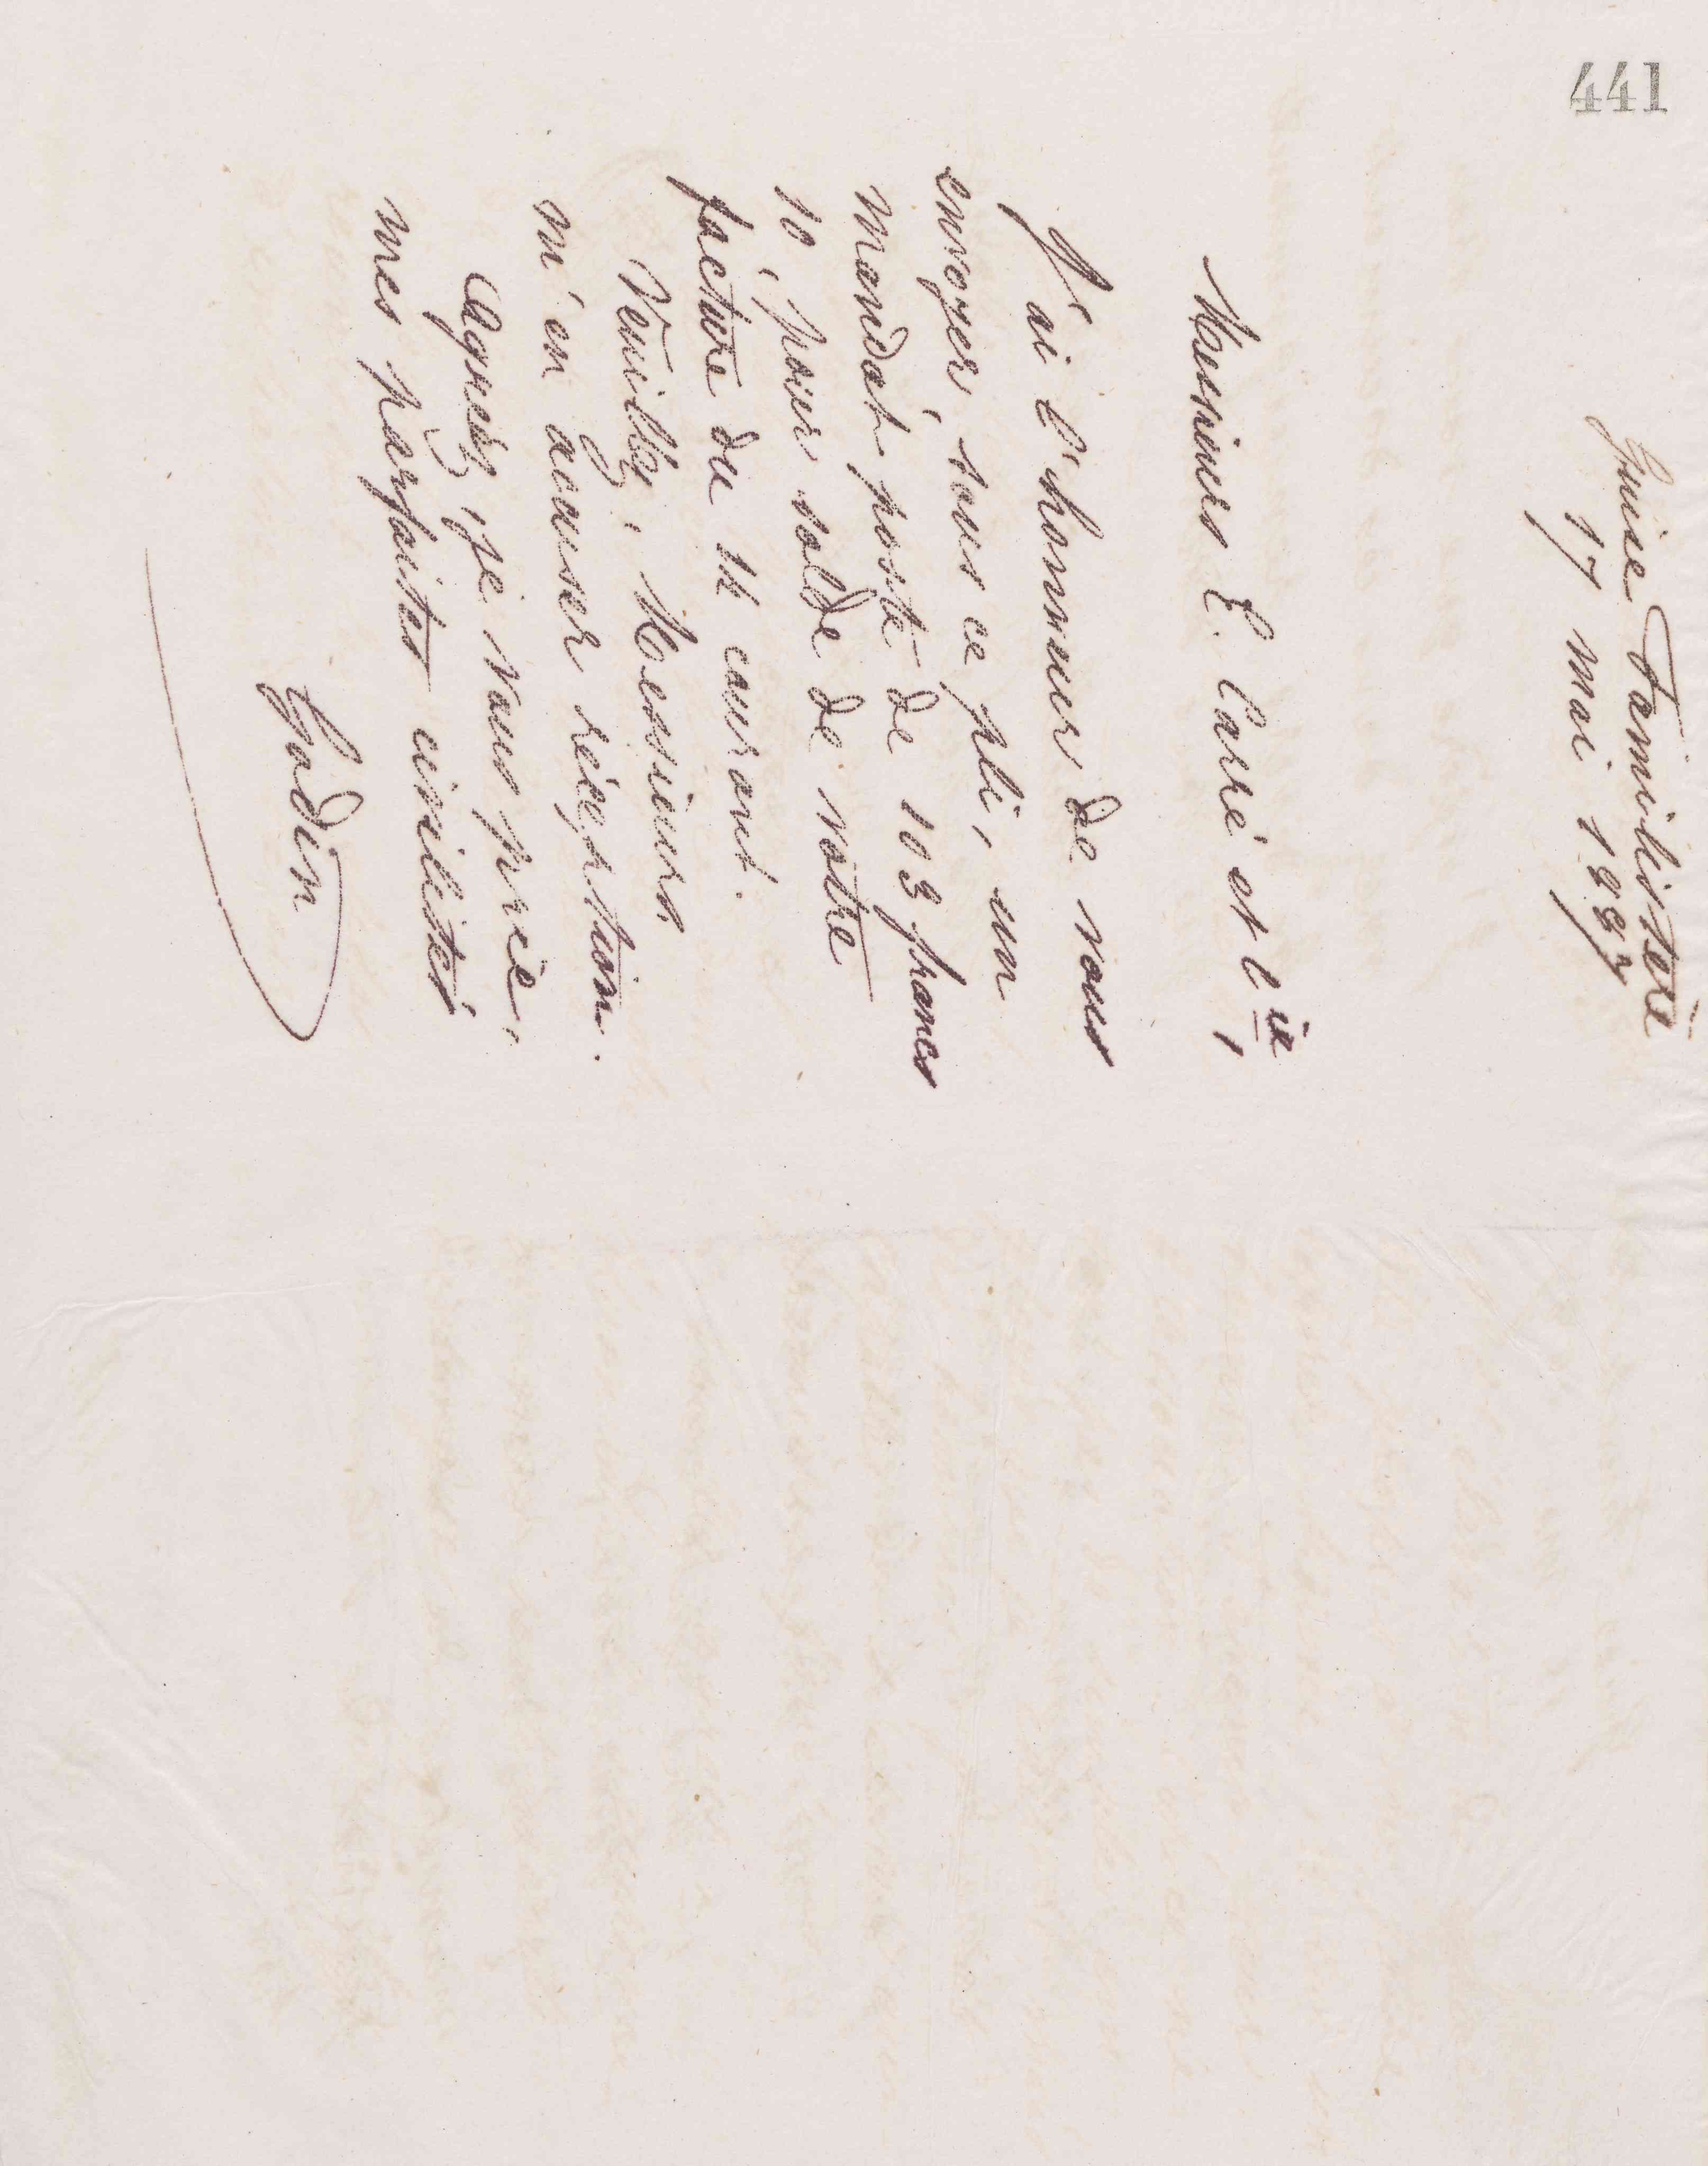 441
Guise Familistère
17 mai 1887
Messieurs E. Carré et Cie,
J'ai l'honneur de vous
envoyer, sous ce pli, un
mandat poste de 103 francs
10, pour solde de votre
facture du 14 courant.
Veuillez, Messieurs
m'en accuser réception.
Agréez, je vous prie,
mes parfaites civilités
Godin